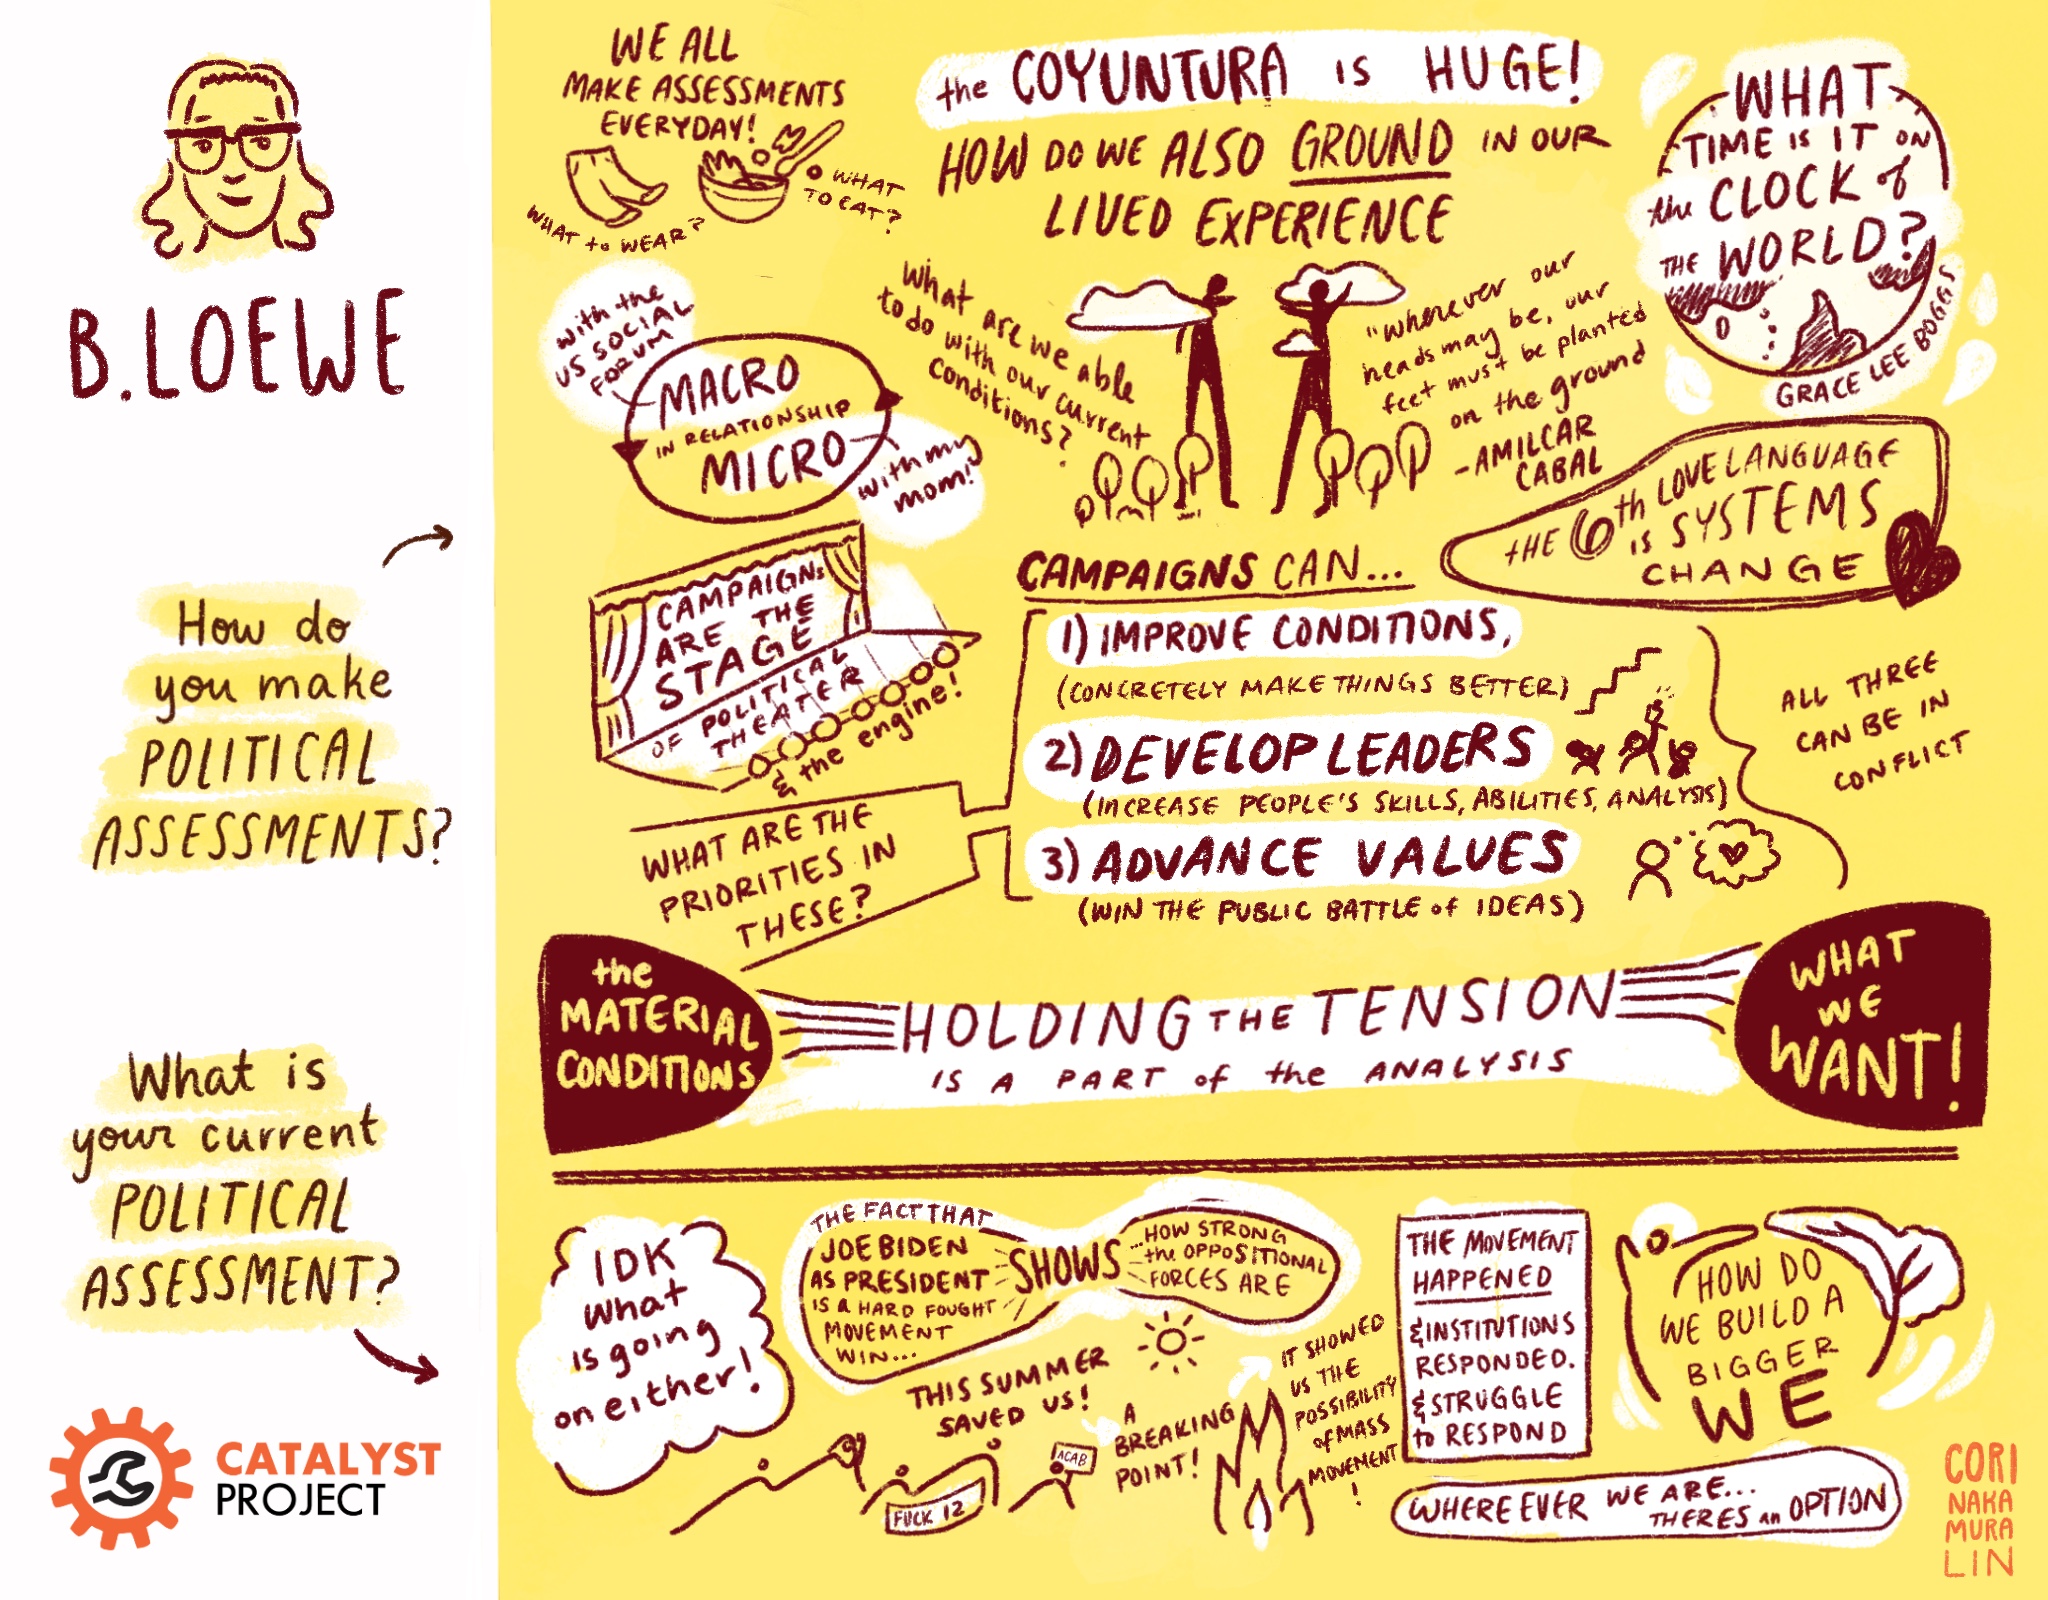 B.LOEWE
How do
you make
POLITICAL
ASSESSMENTS?
What is
your current
POLITICAL
ASSESSMENT?
CATALYST
PROJECT
WE ALL
MAKE ASSESSMENTS
EVERYDAY!
WHAT to WEAR?
WHAT
TO EAT?
the COYUNTURA IS HUGE!
HOW DO WE ALSO GROUND IN OUR
LIVED EXPERIENCE
WHAT
TIME IS IT ON
the CLOCK of
THE WORLD?
GRACE LEE BOGGS
with the
US SOCIAL
FORUM
MACRO
IN RELATIONSHIP
MICRO
with my
mom!
What are we able
to do with our current
conditions?
"Wherever our
heads may be, our
feet must be planted
on the ground
-AMILCAR
CABAL
THE 6th LOVE LANGUAGE
IS SYSTEMS
CHANGE
CAMPAIGNS
ARE THE
STAGE
OF POLITICAL
THEATER
& the engine!
CAMPAIGNS CAN...
1) IMPROVE CONDITIONS,
(CONCRETELY MAKE THINGS BETTER)
2) DEVELOP LEADERS
(INCREASE PEOPLE'S SKILLS, ABILITIES, ANALYSIS)
3) ADVANCE VALUES
(WIN THE PUBLIC BATTLE of IDEAS)
ALL THREE
CAN BE IN
CONFLICT
WHAT ARE THE
PRIORITIES IN
THESE?
the
MATERIAL
CONDITIONS
HOLDING THE TENSION
IS A PART of the ANALYSIS
WHAT
WE
WANT!
IDK
what
is going
on either!
THE FACT THAT
JOE BIDEN
AS PRESIDENT
IS a HARD FOUGHT
MOVEMENT
WIN...
SHOWS
...HOW STRONG
the OPPOSITIONAL
FORCES ARE
THIS SUMMER
SAVED US!
FUCK 12
ACAB
A
BREAKING
POINT!
IT SHOWED
US THE
POSSIBILITY
of MASS
MOVEMENT
!
THE MOVEMENT
HAPPENED
& INSTITUTIONS
RESPONDED.
& STRUGGLE
to RESPOND
HOW DO
WE BUILD A
BIGGER
WE
WHERE EVER WE ARE...
THERES an OPTION
CORI
NAKA
MURA
LIN